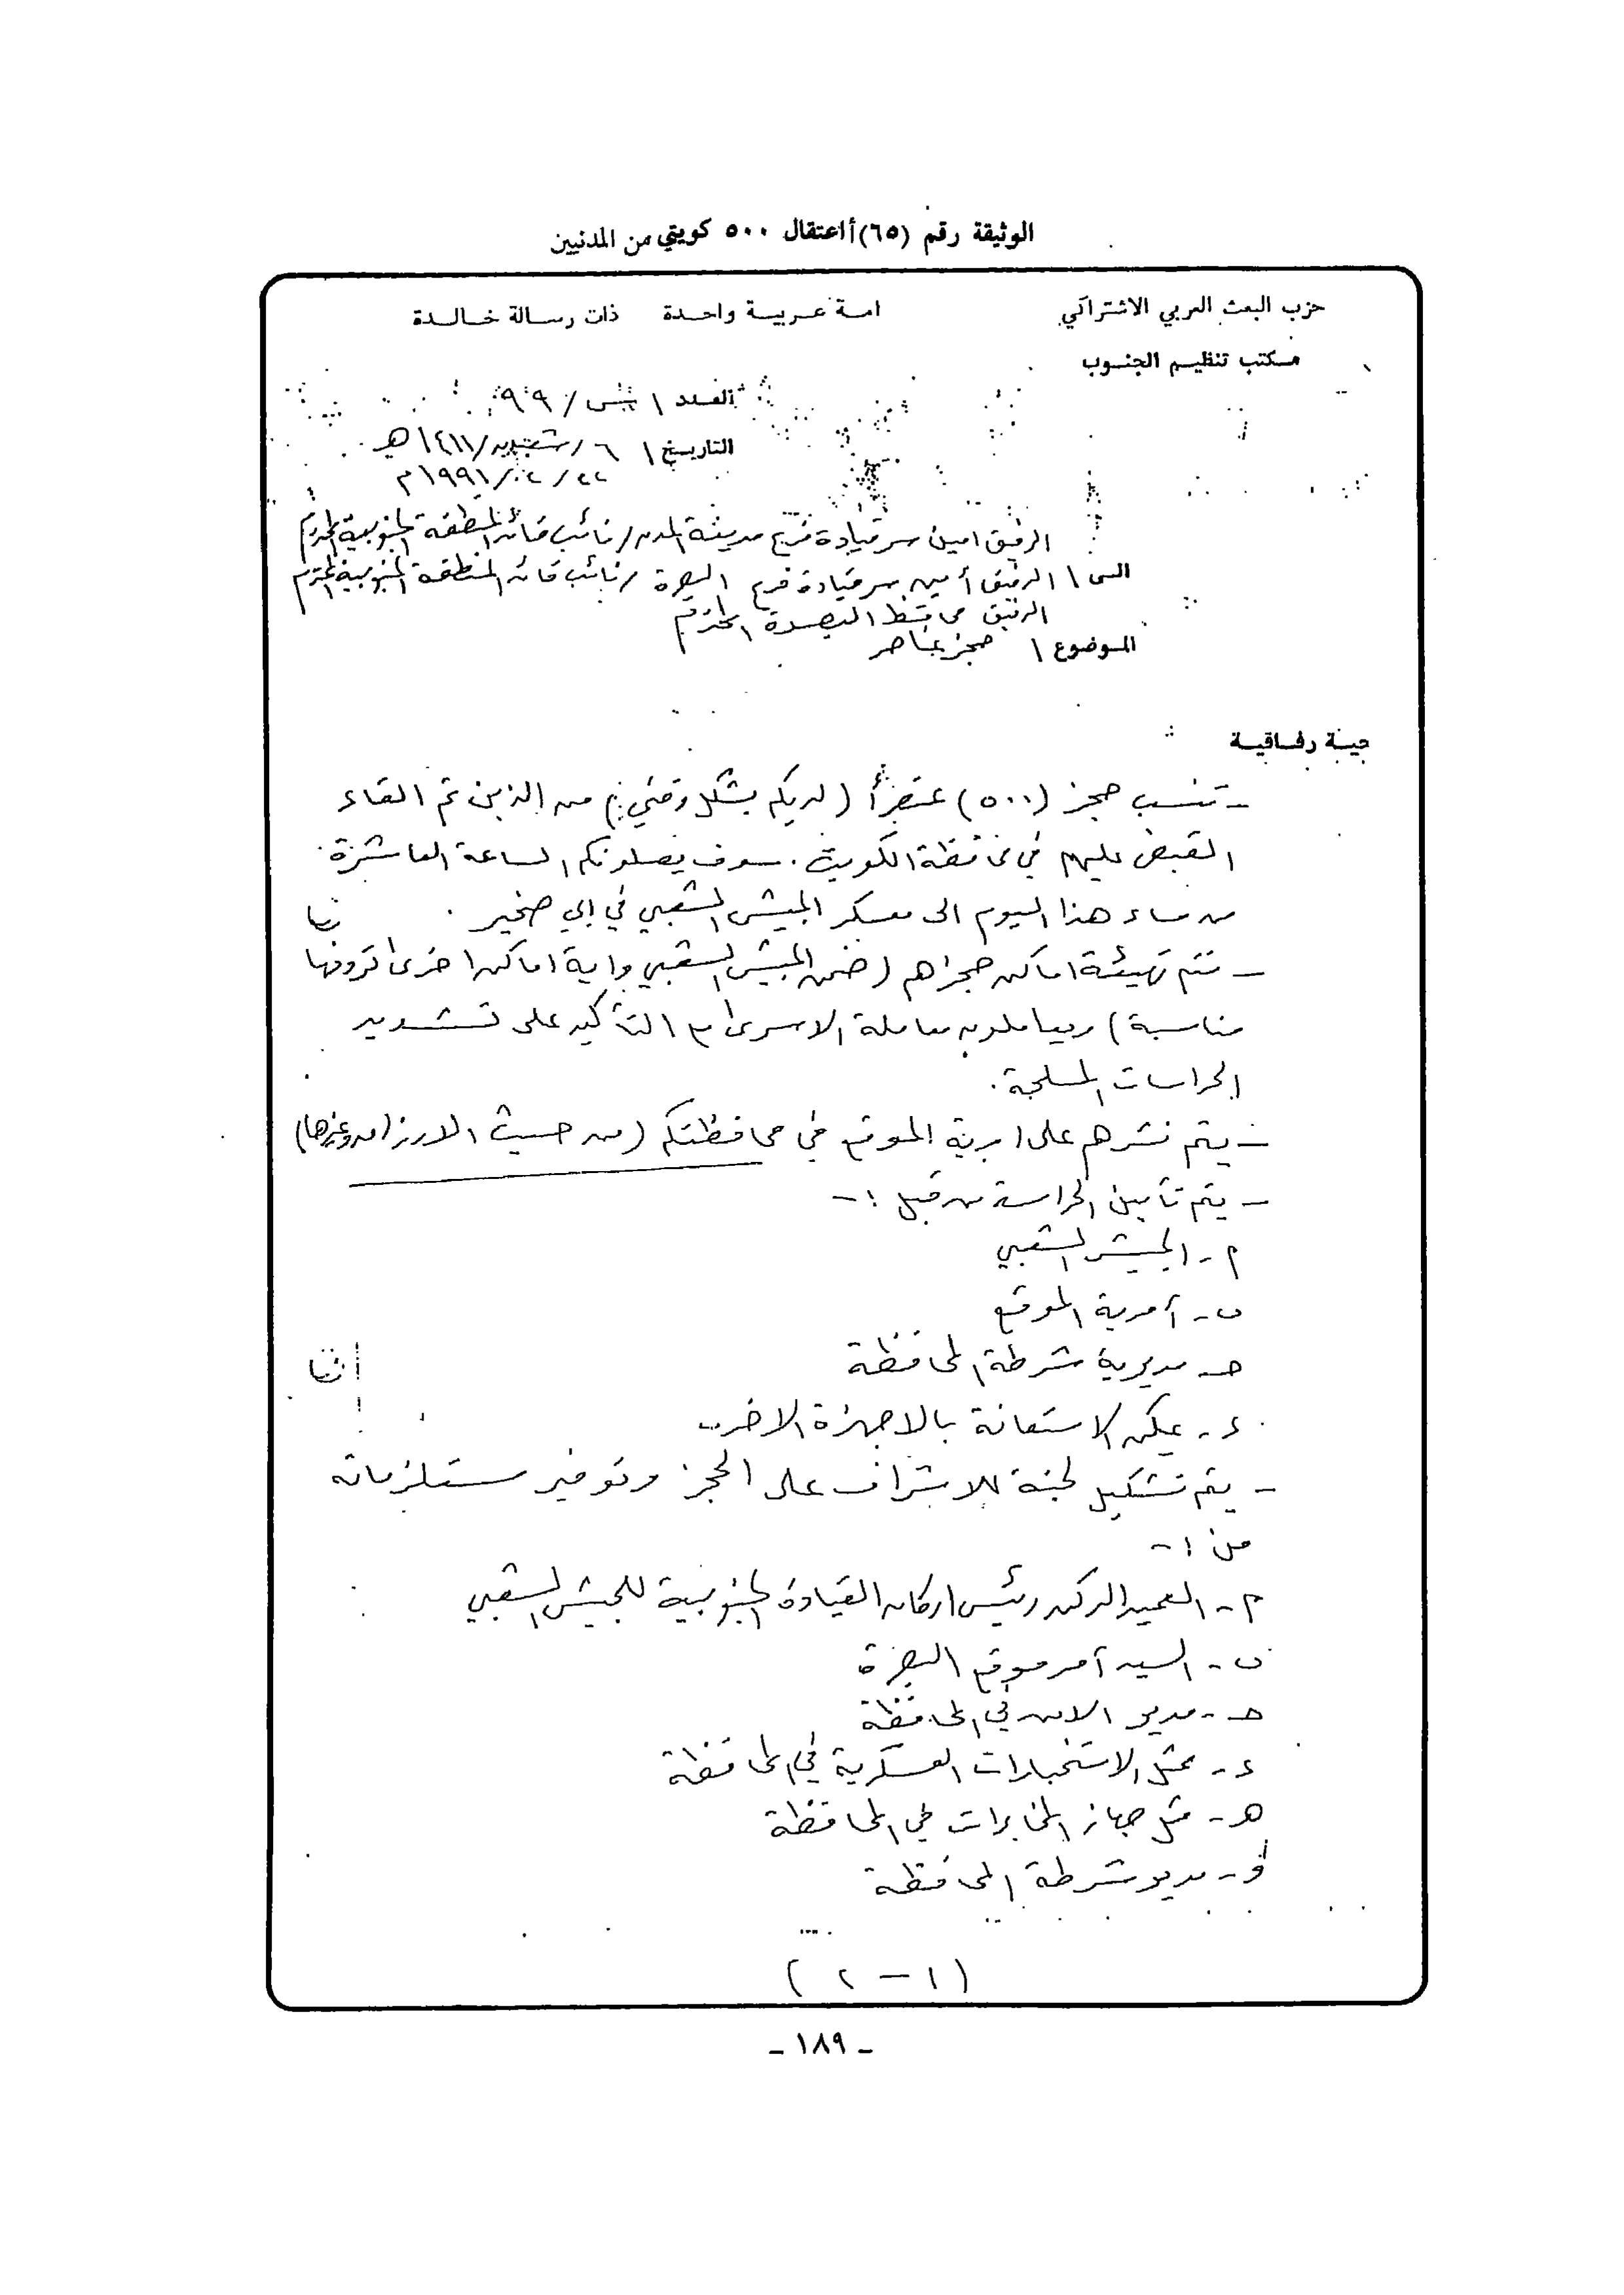 الوثيقة رقم (٦٥)أ اعتقال ٥٠٠ كويتي من المدنيين
حزب البعث العربي الاشتراكي
امة عربية واحدة ذات رسالة خالدة
مكتب تنظيم الجنوب
العدد / س / ٩٩
التاريخ / ٦ / شعبان / ١٤١١ هـ
٢٢ / ٢ / ١٩٩١ م
الرفيق امين سر قيادة فرع مدينة المدن / نائب قائد المنطقة الجنوبية المحترم
الى / الرفيق أمين سر قيادة فرع البصرة / نائب قائد المنطقة الجنوبية المحترم
الرفيق محافظ البصرة المحترم
الموضوع / حجز عناصر
تحية رفاقية
- تنسب حجز (٥٠٠) عنصرأ (لديكم بشكل وقتي) من الذين تم القاء
القبض عليهم في محافظة الكويت . سوف يصلونكم الساعة العاشرة
من مساء هذا اليوم الى معسكر الجيش الشعبي في ابي صخير .
- تتم تهيئة اماكن حجزهم (ضمن الجيش الشعبي واية اماكن اخرى ترونها
مناسبة) ويعاملون معاملة الاسرى مع التأكيد على تشديد
الحراسات المسلحة .
- يتم نشرهم على امرية الموقع في محافظتكم (من حيث الارزاق وغيرها)
- يتم تأمين الحراسة من قبل :-
أ - الجيش الشعبي
ب - آمرية الموقع
حـ - مديرية شرطة المحافظة
ء - يمكن الاستعانة بالاجهزة الاخرى
- يتم تشكيل لجنة للاشراف على الحجز وتوفير مستلزماته
من :-
أ - العميد الركن رئيس اركان القيادة الجنوبية للجيش الشعبي
ب - السيد آمر موقع البصرة
حـ - مدير الامن في المحافظة
ء - ممثل الاستخبارات العسكرية في المحافظة
هـ - ممثل جهاز المخابرات في المحافظة
و - مدير شرطة المحافظة
(١ - ٢)
- ١٨٩ -